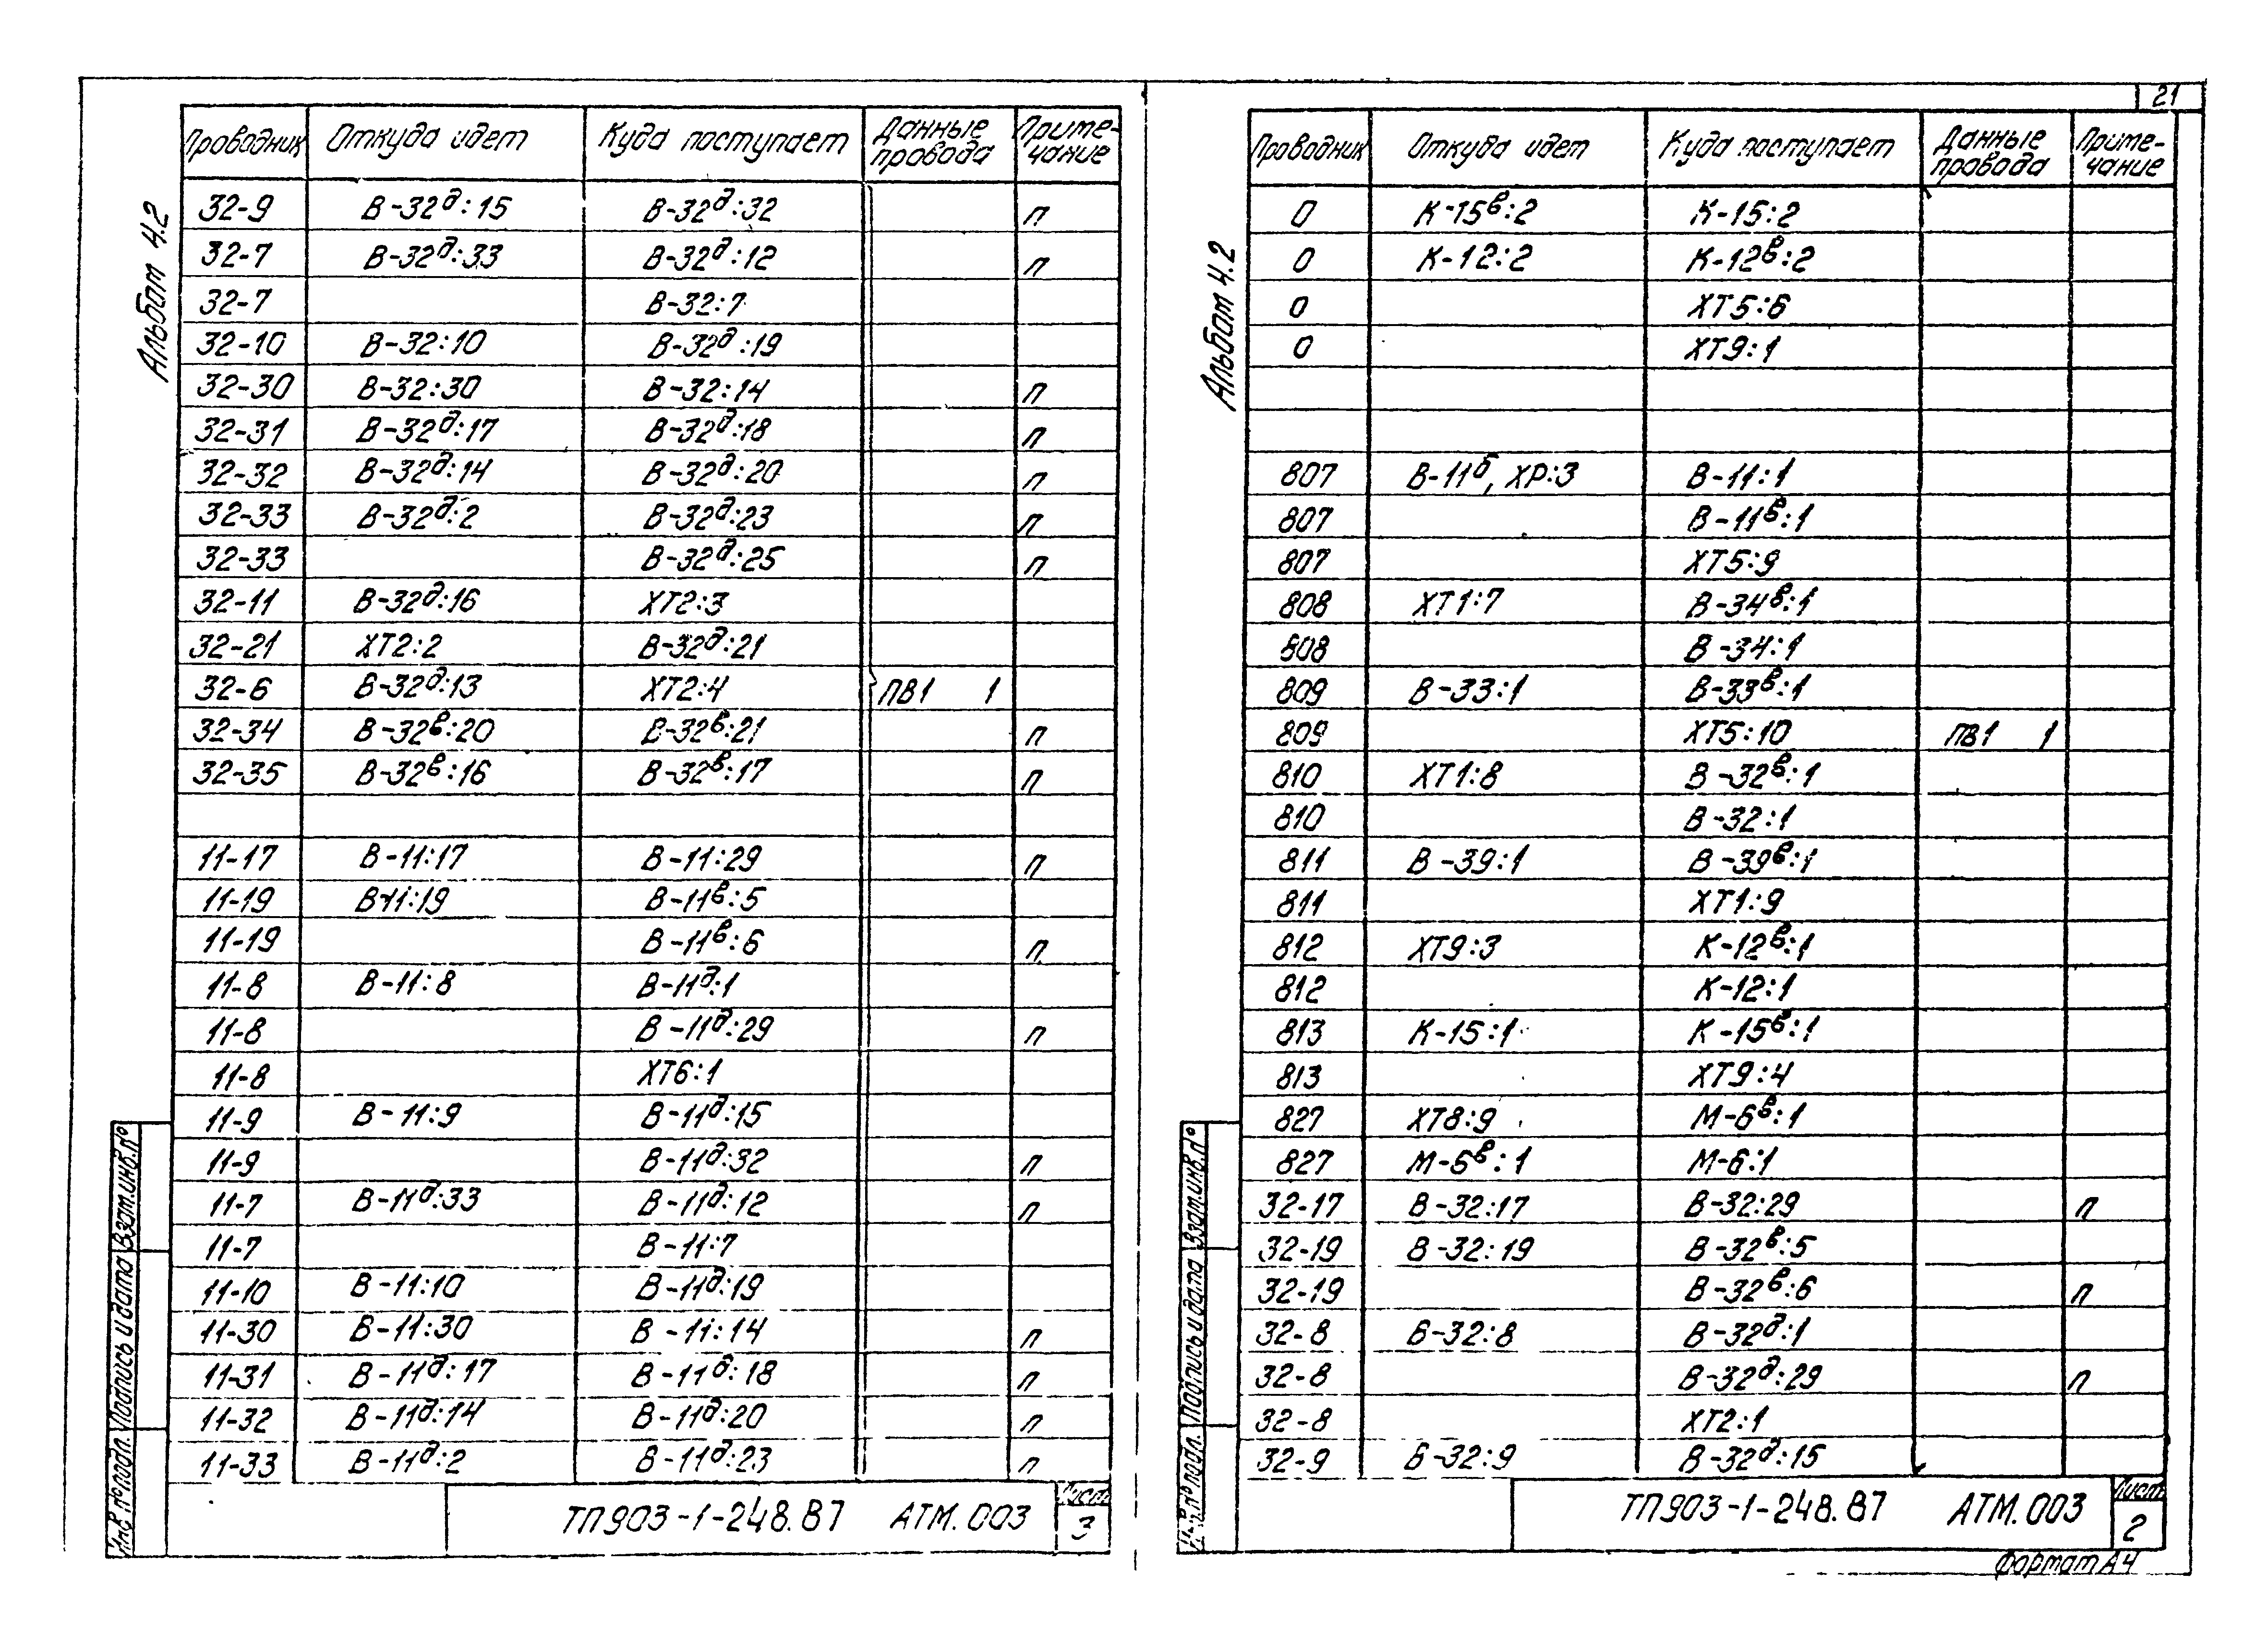 Альбом 4.2
Проводник Откуда идет Куда поступает Данные провода Приме-чание
32-9 В-32д:15 В-32д:32 п
32-7 В-32д:33 В-32д:12 п
32-7 В-32:7
32-10 В-32:10 В-32д:19
32-30 В-32:30 В-32:14 п
32-31 В-32д:17 В-32д:18 п
32-32 В-32д:14 В-32д:20 п
32-33 В-32д:2 В-32д:23 п
32-33 В-32д:25 п
32-11 В-32д:16 ХТ2:3
32-21 ХТ2:2 В-32д:21
32-6 В-32д:13 ХТ2:4 ПВ1 1
32-34 В-32в:20 В-32в:21 п
32-35 В-32в:16 В-32в:17 п
11-17 В-11:17 В-11:29 п
11-19 В-11:19 В-11в:5
11-19 В-11в:6 п
11-8 В-11:8 В-11д:1
11-8 В-11д:29 п
11-8 ХТ6:1
11-9 В-11:9 В-11д:15
11-9 В-11д:32 п
11-7 В-11д:33 В-11д:12 п
11-7 В-11:7
11-10 В-11:10 В-11д:19
11-30 В-11:30 В-11:14 п
11-31 В-11д:17 В-11д:18 п
11-32 В-11д:14 В-11д:20 п
11-33 В-11д:2 В-11д:23 п
Инв.№подл. Подпись и дата Взам.инв.№
ТП903-1-248.87 АТМ.003
Лист
3
21
Альбом 4.2
Проводник Откуда идет Куда поступает Данные провода Приме-чание
0 К-15в:2 К-15:2
0 К-12:2 К-12в:2
0 ХТ5:6
0 ХТ9:1
807 В-11б, ХР:3 В-11:1
807 В-11в:1
807 ХТ5:9
808 ХТ1:7 В-34в:1
808 В-34:1
809 В-33:1 В-33в:1
809 ХТ5:10 ПВ1 1
810 ХТ1:8 В-32в:1
810 В-32:1
811 В-39:1 В-39в:1
811 ХТ1:9
812 ХТ9:3 К-12в:1
812 К-12:1
813 К-15:1 К-15в:1
813 ХТ9:4
827 ХТ8:9 М-6в:1
827 М-6в:1 М-6:1
32-17 В-32:17 В-32:29 п
32-19 В-32:19 В-32в:5
32-19 В-32в:6 п
32-8 В-32:8 В-32д:1
32-8 В-32д:29 п
32-8 ХТ2:1
32-9 В-32:9 В-32д:15
Инв.№подл. Подпись и дата Взам.инв.№
ТП903-1-248.87 АТМ.003
Лист
2
Формат А4